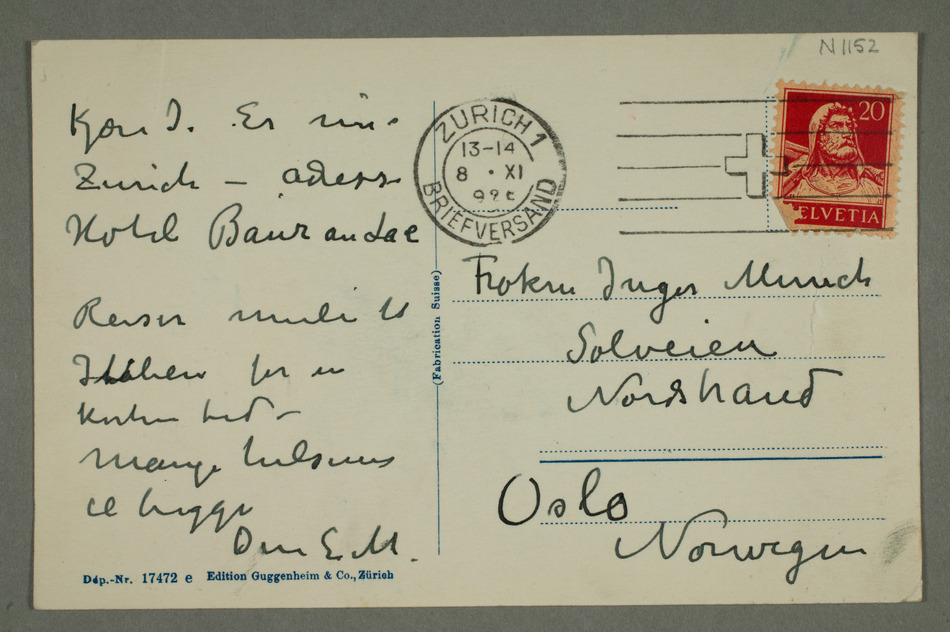 N 1152
Kjære I. Er nu i
Zürich – adress
Hotel Baur au Lac
Reiser muligt
Italien for en
kortere tid –
Mange hilsener
til begge
Din E.M.
Dép.-Nr. 17472 e Edition Guggenheim & Co., Zürich
(Fabrication Suisse)
ZÜRICH 1
13–14
8 · XI
BRIEFVERSAND
20
HELVETIA
Frøken Inger Munch
Solveien
Nordstrand
Oslo
Norwegen